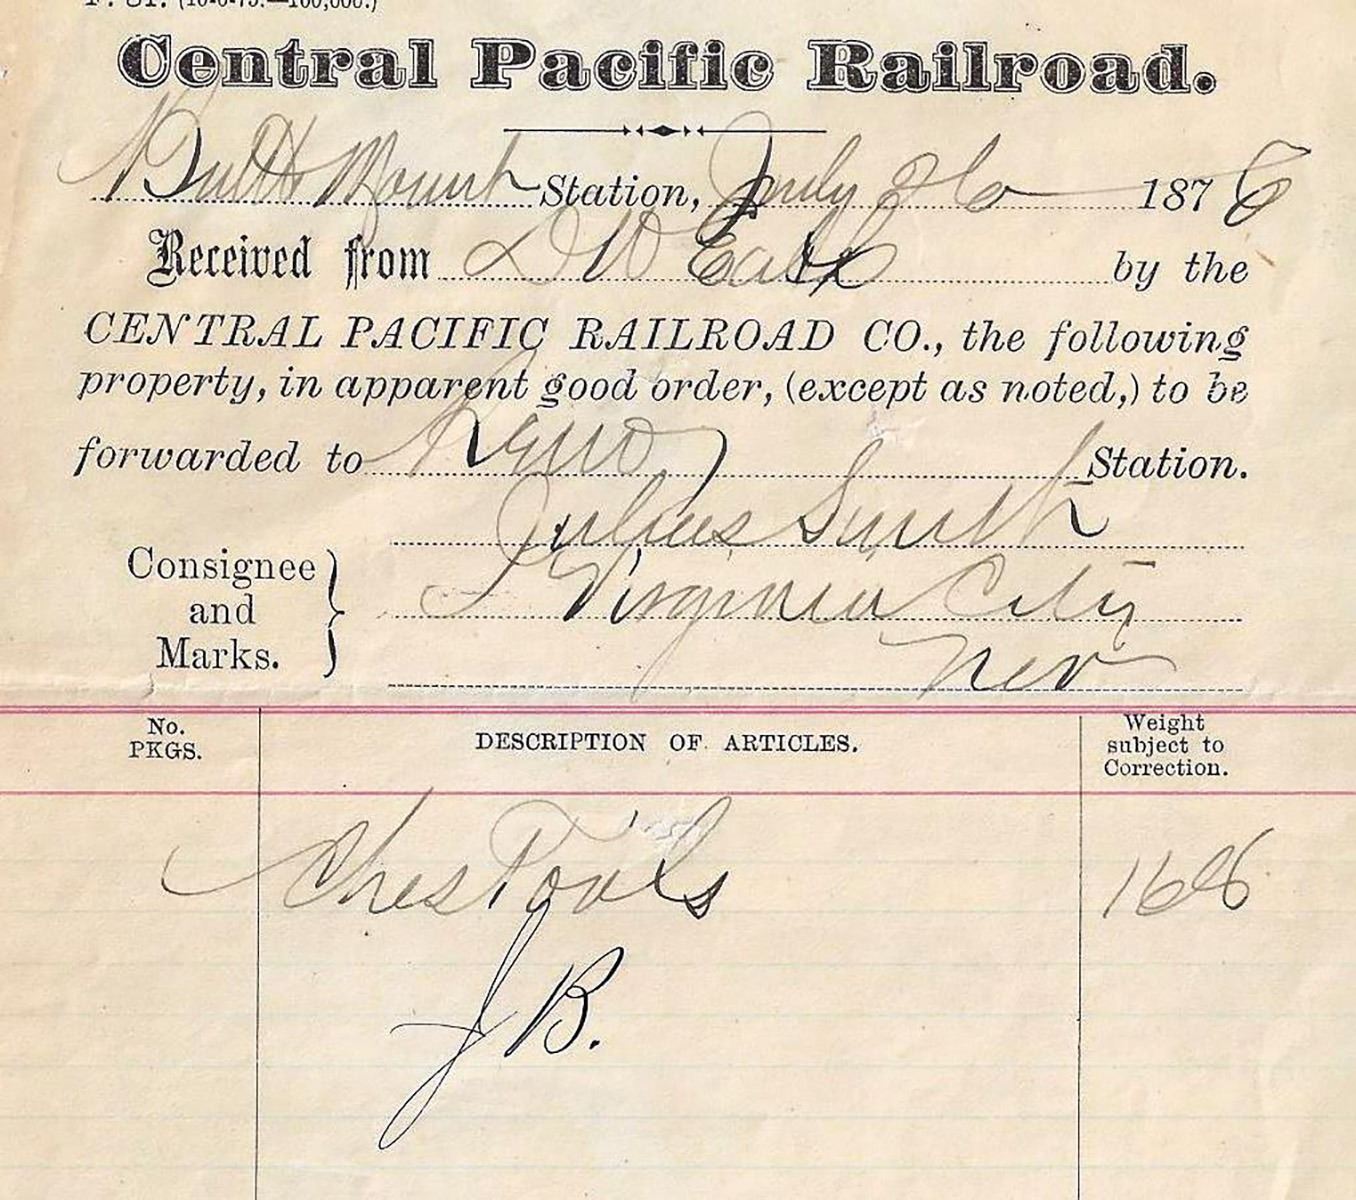 Central Pacific Railroad.
Batt Mount Station, July 26 1876
Received from D W Earl by the
CENTRAL PACIFIC RAILROAD CO., the following
property, in apparent good order, (except as noted,) to be
forwarded to Reno Station.
Julius Smith
Consignee and Marks. Virginia City
Nev
No. PKGS. DESCRIPTION OF ARTICLES. Weight subject to Correction.
Ches Tools 168
J B.